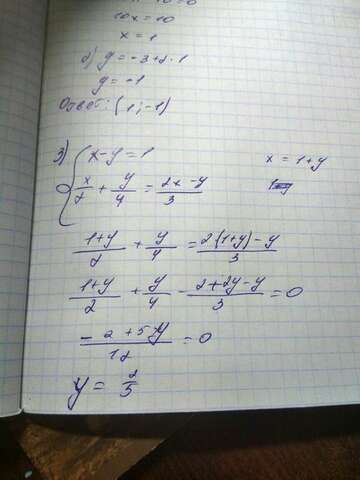 10x = 10
x = 1
2) y = -3 + 2 · 1
y = -1
Ответ: (1; -1)
3) { x - y = 1
x = 1 + y
x/2 + y/4 = (2x - y)/3
(1+y)/2 + y/4 = (2(1+y) - y)/3
(1+y)/2 + y/4 - (2+2y-y)/3 = 0
(-2 + 5y)/12 = 0
y = 2/5